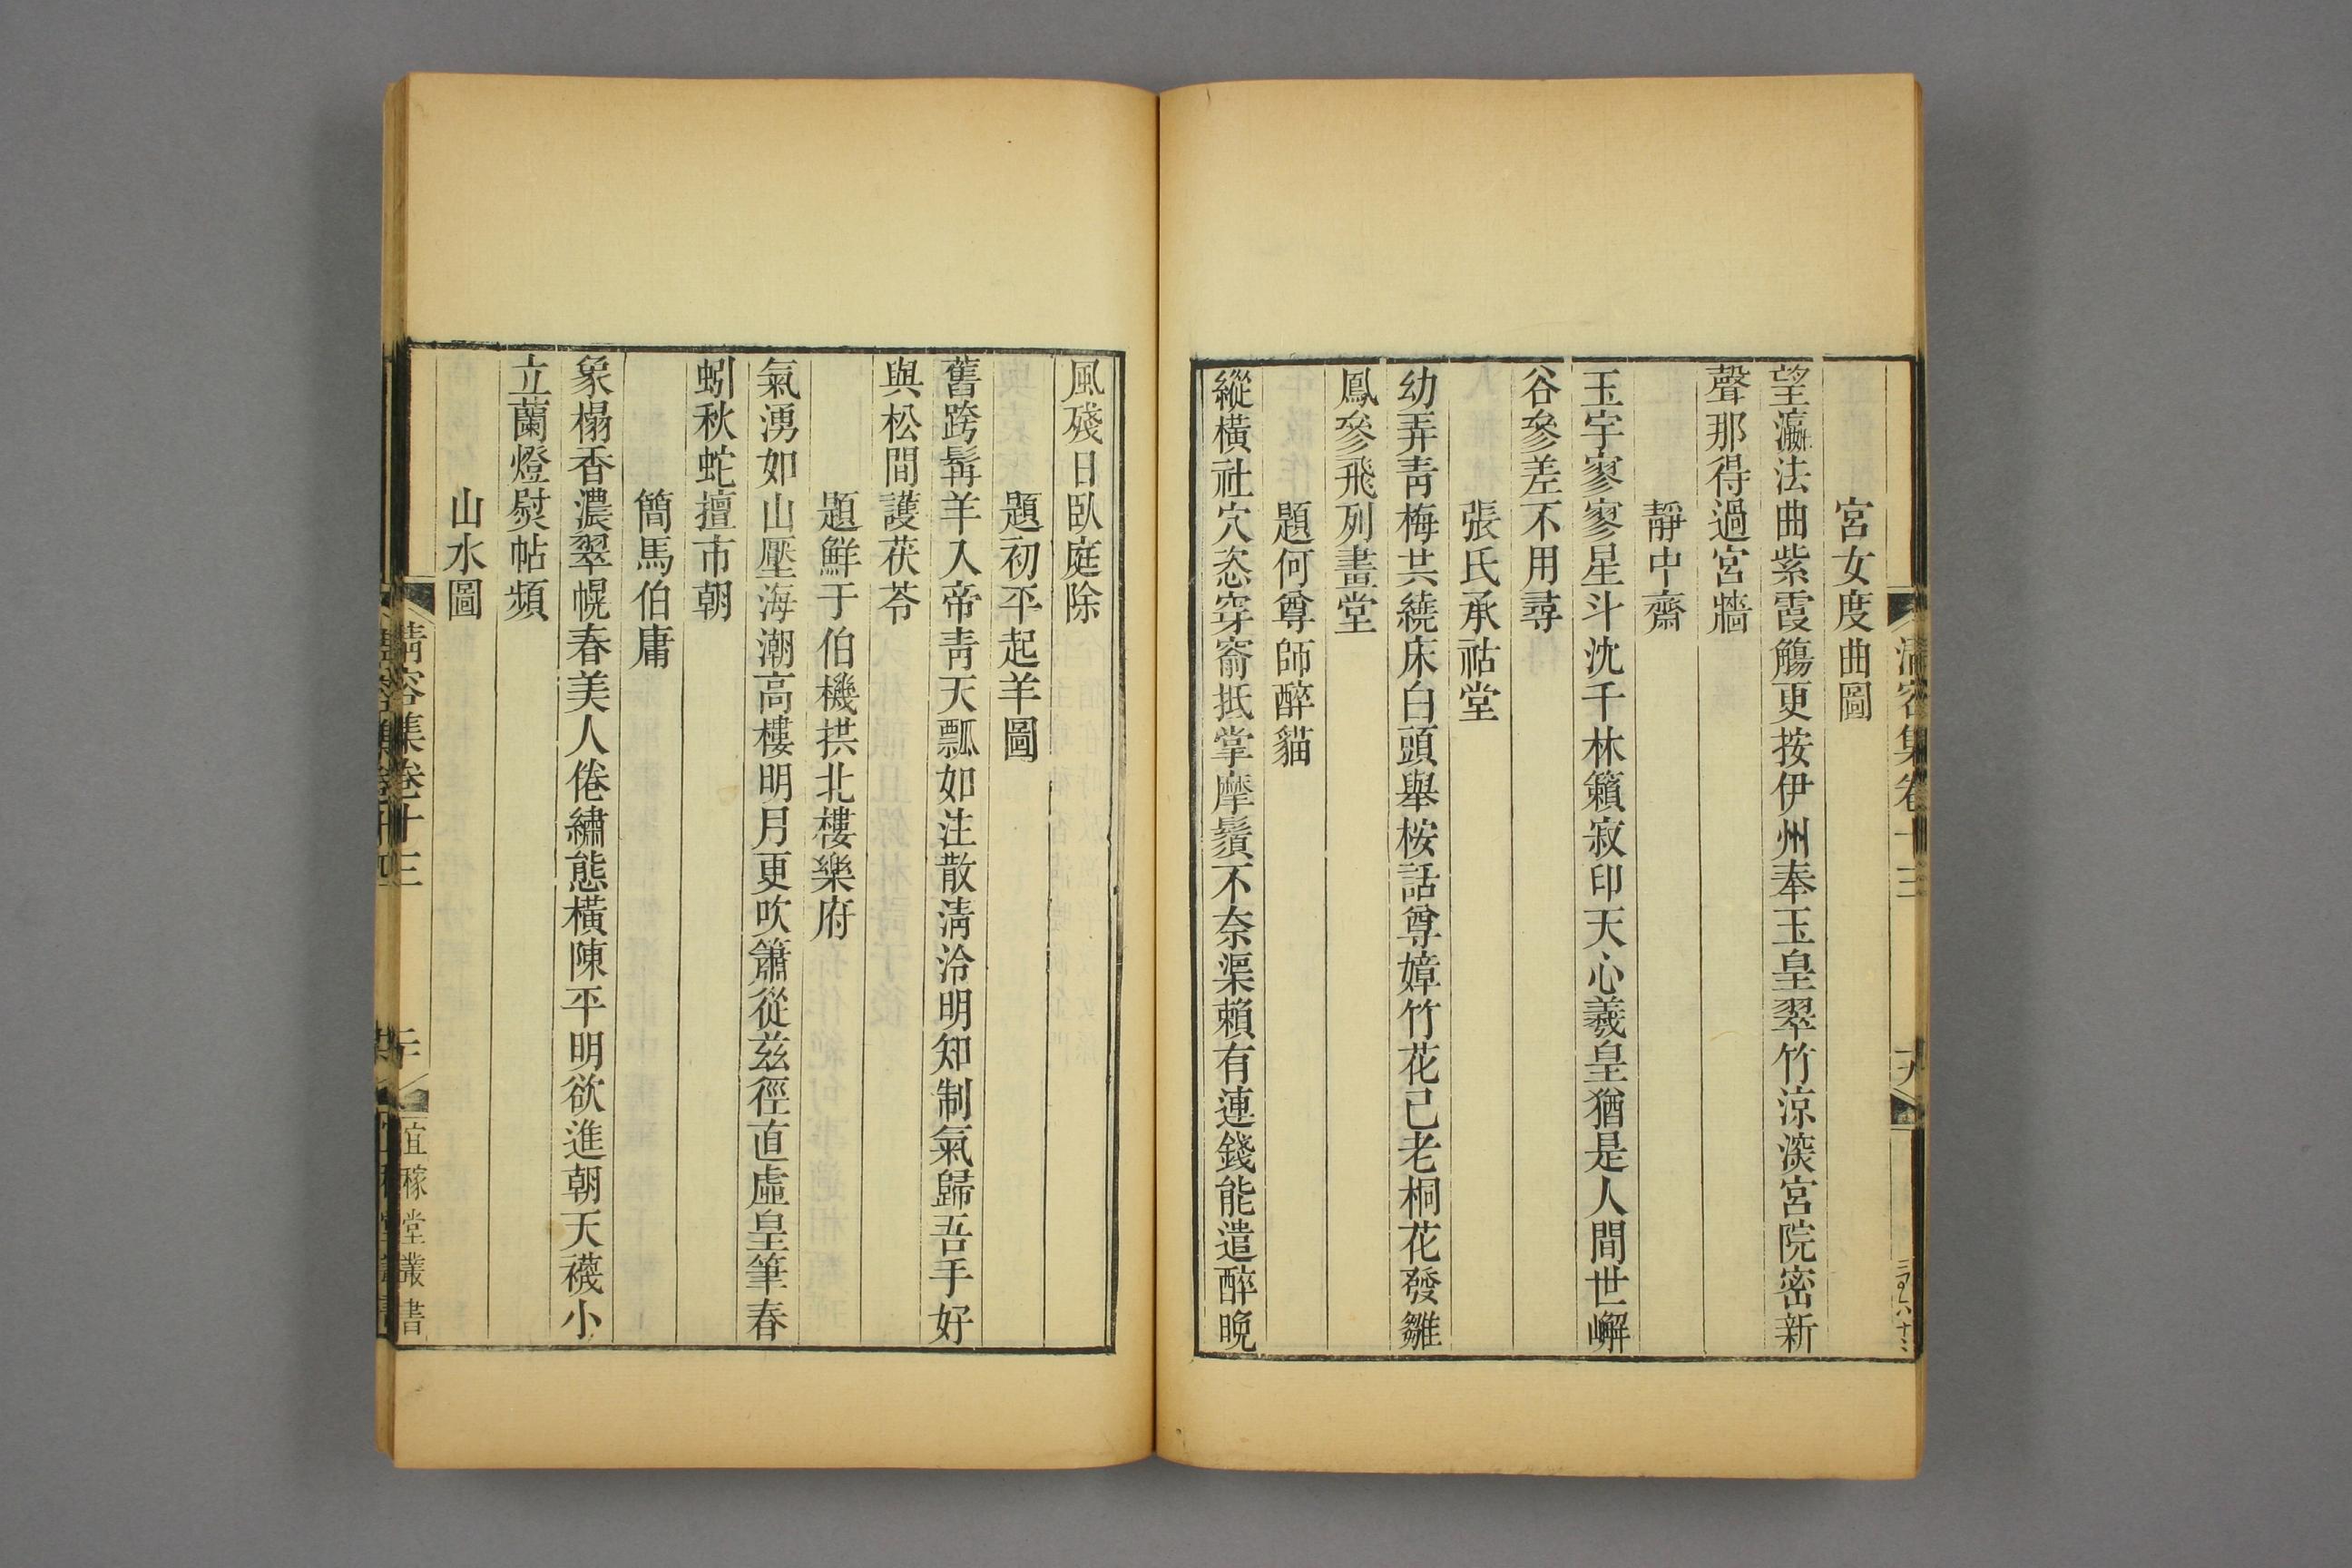 宮女度曲圖
望瀛法曲紫霞觴更按伊州奉玉皇翠竹涼深宮院密新
聲那得過宮牆
靜中齋
玉宇寥寥星斗沈千林籟寂印天心羲皇猶是人間世嶰
谷參差不用尋
張氏承祜堂
幼弄靑梅共繞床白頭舉桉話尊嫜竹花已老桐花發雛
鳳參飛列畫堂
題何尊師醉貓
縱橫社穴恣穿窬抵掌摩鬚不奈渠賴有連錢能遣醉晚
清容集卷十三
風殘日臥庭除
題初平起羊圖
舊跨髯羊入帝靑天瓢如注散淸泠明知制氣歸吾手好
與松間護茯苓
題鮮于伯機拱北樓樂府
氣湧如山壓海潮高樓明月更吹簫從茲徑直虛皇筆春
蚓秋蛇擅市朝
簡馬伯庸
象榻香濃翠幌春美人倦繡態橫陳平明欲進朝天襪小
立蘭燈熨帖頻
山水圖
清容集卷十三
宜稼堂叢書